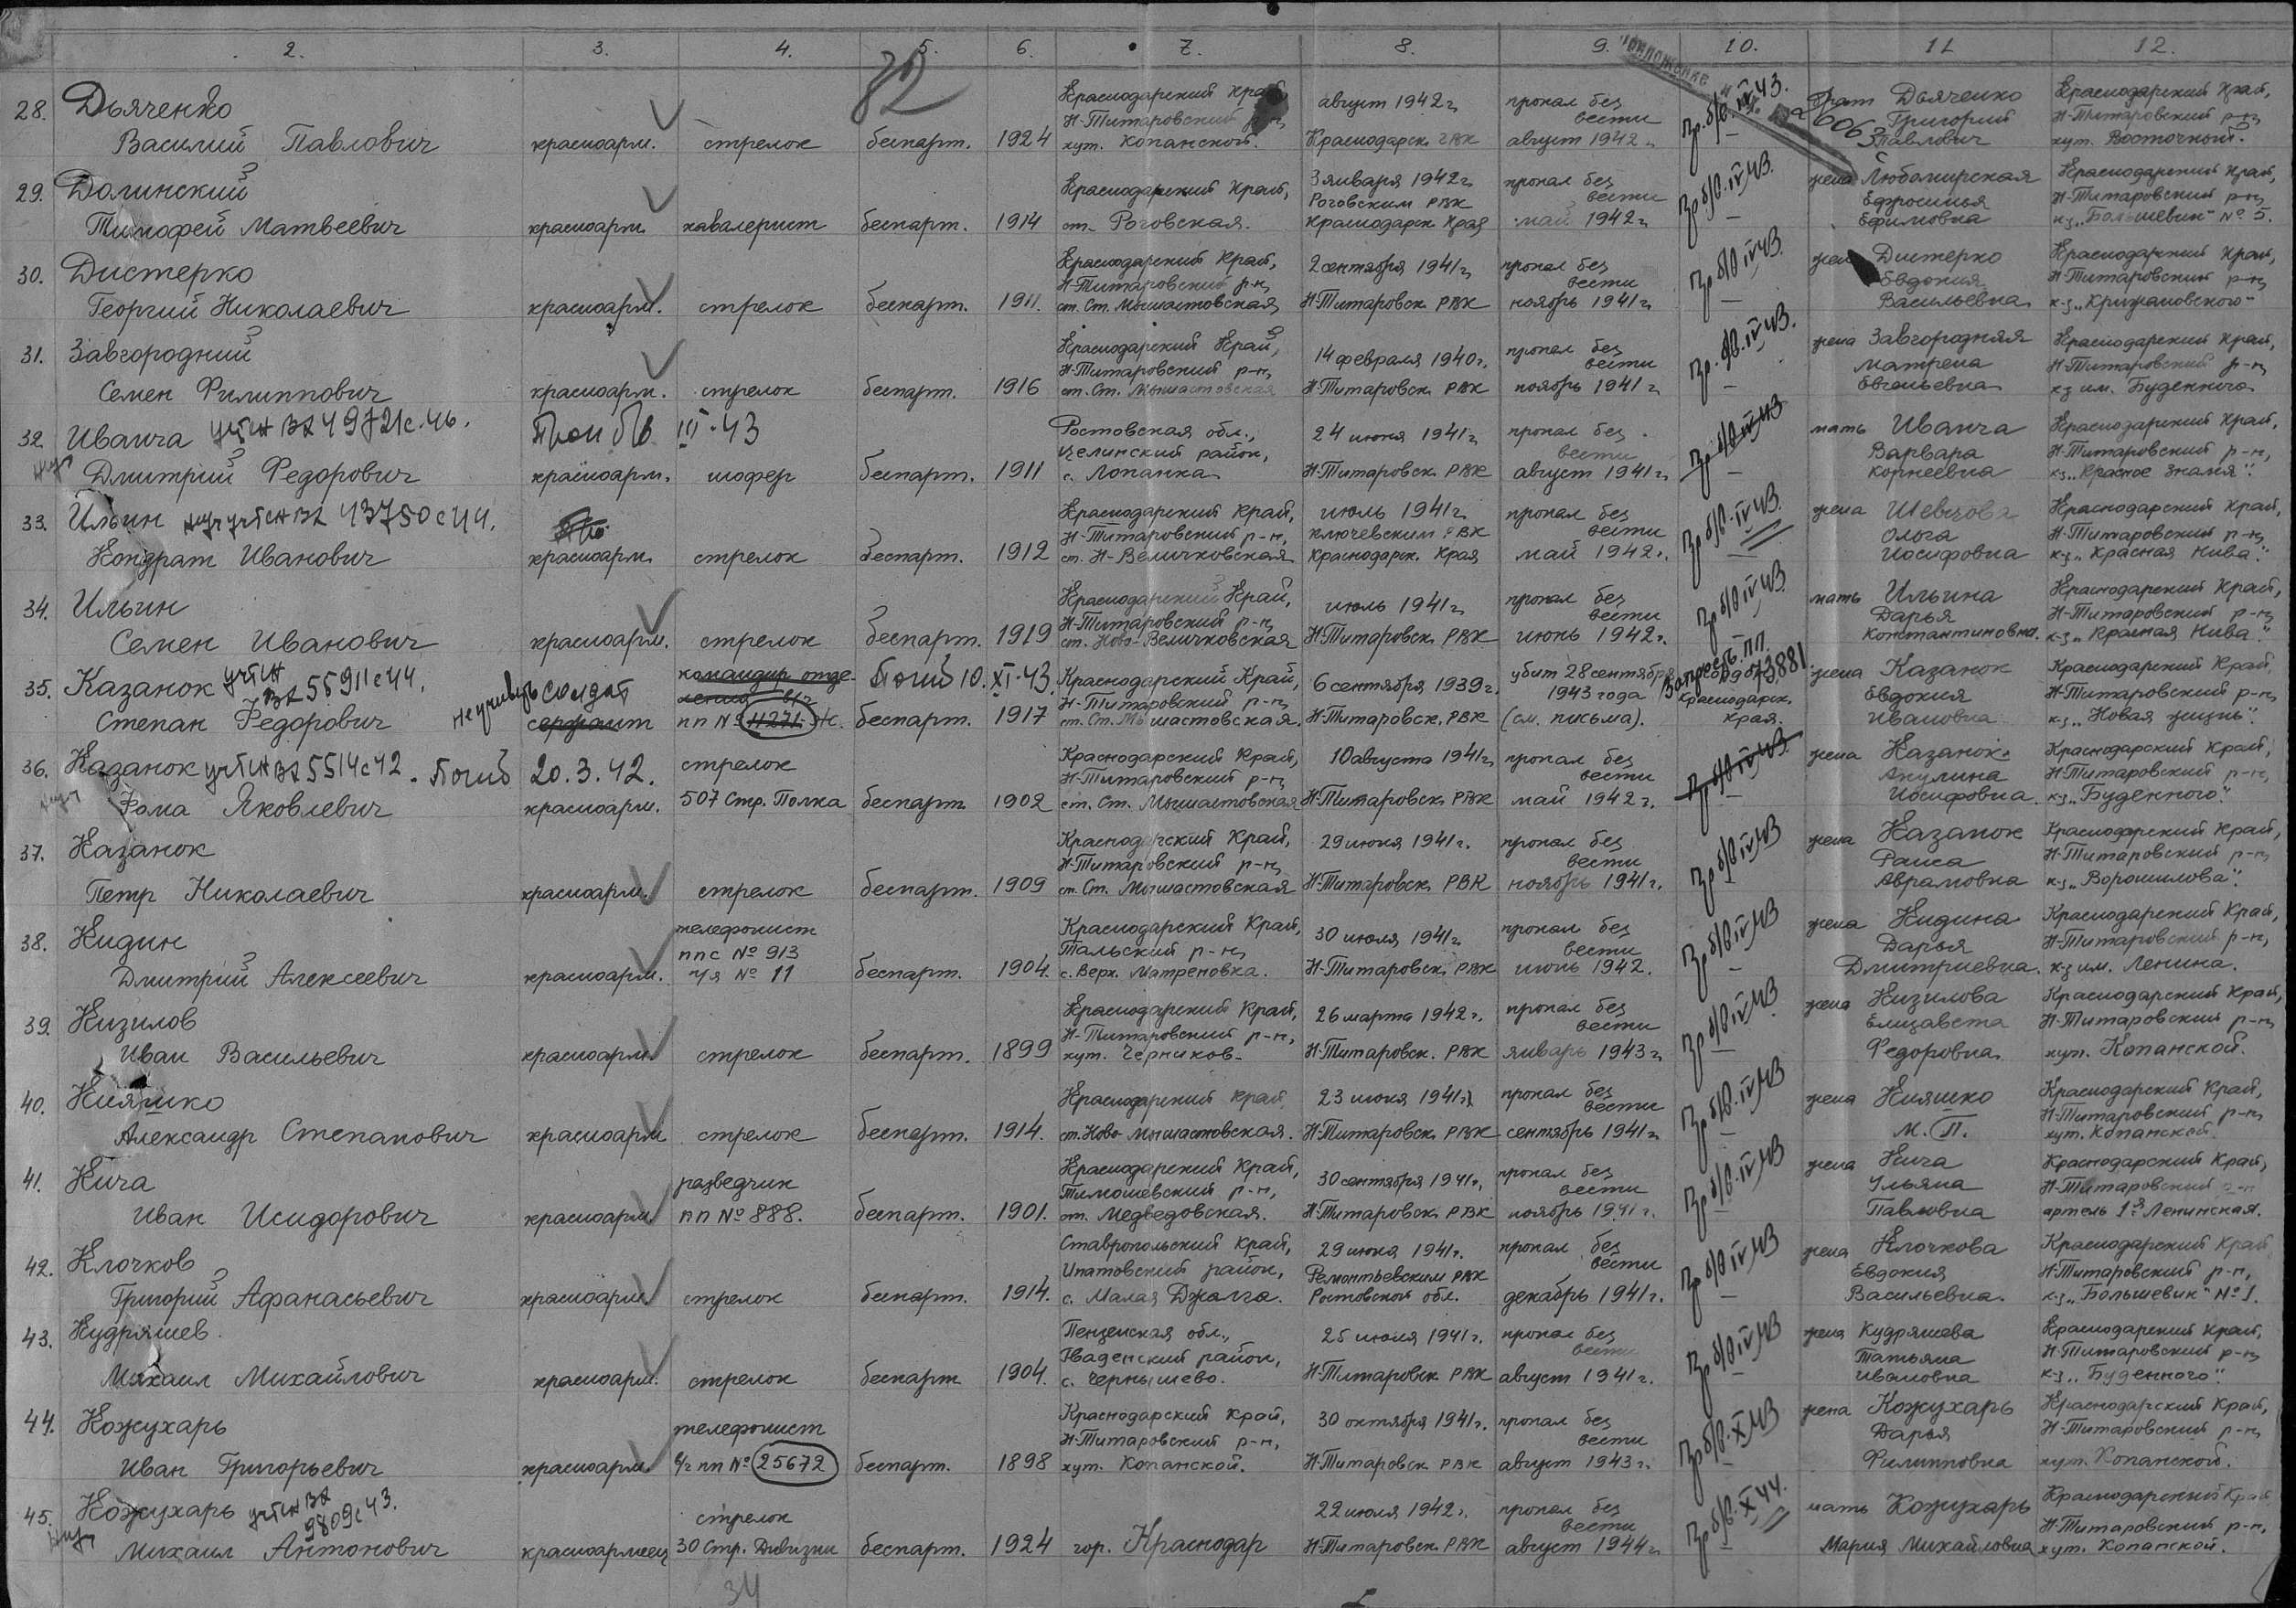 2. 3. 4. 5. 6. 7. 8. 9. 10. 11 12.
32
Приложение
28. Дьяченко
Василий Павлович
красноарм. стрелок беспарт. 1924
Краснодарский край
Н-Титаровский р-н
хут. Копанской.
август 1942 г.
Краснодарск. ГВК
пропал без
вести
август 1942 г.
Пр. б/в. IV 43.
брат Дьяченко
Григорий
Павлович
Краснодарский край,
Н-Титаровский р-н
хут. Восточный.
29. Долинский
Тимофей Матвеевич
красноарм. кавалерист беспарт. 1914
Краснодарский край,
ст. Роговская.
3 января 1942 г.
Роговским РВК
Краснодарск. края
пропал без
вести
май 1942 г.
Пр б/в. IV 43.
жена Любомирская
Ефросинья
Ефимовна
Краснодарский край,
Н-Титаровский р-н
к-з „Большевик" № 5.
30. Дистерко
Георгий Николаевич
красноарм. стрелок беспарт. 1911.
Краснодарский край,
Н-Титаровский р-н,
ст. Ст. Мышастовская
2 сентября 1941 г.
Н-Титаровск. РВК
пропал без
вести
ноябрь 1941 г.
Пр б/в IV 43.
жена Дистерко
Евдокия
Васильевна
Краснодарский край,
Н-Титаровский р-н
к-з „Кржижановского"
31. Завгородний
Семен Филиппович
красноарм. стрелок беспарт. 1916
Краснодарский край,
Н-Титаровский р-н,
ст. Ст. Мышастовская
14 февраля 1940 г.
Н-Титаровск. РВК
пропал без
вести
ноябрь 1941 г.
Пр. б/в. IV 43.
жена Завгородняя
Матрена
Евгеньевна
Краснодарский край,
Н-Титаровский р-н
к-з им. Буденного
32. Иванча учтен вх 49721с.46.
Дмитрий Федорович
Проп б/в III-43
красноарм. шофер беспарт. 1911
Ростовская обл.,
Целинский район,
с. Лопанка
24 июня 1941 г.
Н-Титаровск. РВК
пропал без
вести
август 1941 г.
Пр б/в IV 43
мать Иванча
Варвара
Корнеевна
Краснодарский край,
Н-Титаровский р-н,
к-з „Красное знамя".
33. Ильин учтен вх 43750с44.
Кондрат Иванович
красноарм. стрелок беспарт. 1912
Краснодарский край,
Н-Титаровский р-н,
ст. Н-Величковская
июль 1941 г.
Ключевским РВК
Краснодарск. края
пропал без
вести
май 1942 г.
Пр б/в. IV 43.
жена Шевцова
Ольга
Иосифовна
Краснодарский край,
Н-Титаровский р-н,
к-з „Красная Нива".
34. Ильин
Семен Иванович
красноарм. стрелок беспарт. 1919
Краснодарский край,
Н-Титаровский р-н,
ст. Ново-Величковская
июль 1941 г.
Н-Титаровск. РВК
пропал без
вести
июнь 1942 г.
Пр б/в IV 43.
мать Ильина
Дарья
Константиновна.
Краснодарский край,
Н-Титаровский р-н,
к-з „Красная Нива".
35. Казанок учтен
вх 55911с44.
Степан Федорович
солдат
сержант
командир отде-
ления в/ч
пп № 11271-Ж.
Погиб 10. XI-43.
беспарт. 1917
Краснодарский край,
Н-Титаровский р-н,
ст. Ст. Мышастовская.
6 сентября 1939 г.
Н-Титаровск. РВК
убит 28 сентября
1943 года
(см. письма).
Краснодарск.
края.
жена Казанок
Евдокия
Ивановна
Краснодарский край,
Н-Титаровский р-н,
к-з „Новая жизнь".
36. Казанок учтен вх 5514с42. Погиб 20.3.42.
Фома Яковлевич
красноарм.
стрелок
507 Стр. Полка
беспарт. 1902
Краснодарский край,
Н-Титаровский р-н,
ст. Ст. Мышастовская
10 августа 1941 г.
Н-Титаровск. РВК
пропал без
вести
май 1942 г.
Пр б/в IV 43.
жена Казанок
Акулина
Иосифовна.
Краснодарский край,
Н-Титаровский р-н,
к-з „Буденного".
37. Казанок
Петр Николаевич
красноарм. стрелок беспарт. 1909
Краснодарский край,
Н-Титаровский р-н,
ст. Ст. Мышастовская
29 июня 1941 г.
Н-Титаровск. РВК
пропал без
вести
ноябрь 1941 г.
Пр б/в IV 43
жена Казанок
Раиса
Аврамовна
Краснодарский край,
Н-Титаровский р-н
к-з „Ворошилова".
38. Кидин
Дмитрий Алексеевич
красноарм.
телефонист
ппс № 913
п/я № 11
беспарт. 1904.
Краснодарский край,
Тальский р-н,
с. Верх. Матреновка.
30 июля 1941 г.
Н-Титаровск. РВК
пропал без
вести
июнь 1942.
Пр б/в IV 43
жена Кидина
Дарья
Дмитриевна.
Краснодарский край,
Н-Титаровский р-н,
к-з им. Ленина.
39. Кизилов
Иван Васильевич
красноарм. стрелок беспарт. 1899
Краснодарский край,
Н-Титаровский р-н,
хут. Черников-
26 марта 1942 г.
Н-Титаровск. РВК
пропал без
вести
январь 1943 г.
Пр б/в IV 43
жена Кизилова
Елизавета
Федоровна.
Краснодарский край,
Н-Титаровский р-н,
хут. Копанской.
40. Кияшко
Александр Степанович
красноарм. стрелок беспарт. 1914.
Краснодарский край
ст. Ново-Мышастовская.
23 июня 1941 г.
Н-Титаровск. РВК
пропал без
вести
сентябрь 1941 г.
Пр б/в. IV 43
жена Кияшко
М. П.
Краснодарский край,
Н-Титаровский р-н,
хут. Копанской
41. Кича
Иван Исидорович
красноарм.
разведчик
пп № 888.
беспарт. 1901.
Краснодарский край,
Тимошевский р-н,
ст. Медведовская.
30 сентября 1941 г.
Н-Титаровск. РВК
пропал без
вести
ноябрь 1941 г.
Пр б/в. IV 43
жена Кича
Ульяна
Павловна
Краснодарский край,
Н-Титаровский р-н
артель 1я Ленинская.
42. Клочков
Григорий Афанасьевич
красноарм. стрелок беспарт. 1914.
Ставропольский край,
Ипатовский район,
с. Малая Джалга.
29 июня 1941 г.
Ремонтьевским РВК
Ростовской обл.
пропал без
вести
декабрь 1941 г.
Пр б/в IV 43
жена Клочкова
Евдокия
Васильевна.
Краснодарский край
Н-Титаровский р-н,
к-з „Большевик" № 1.
43. Кудряшев
Михаил Михайлович
красноарм. стрелок беспарт 1904.
Пензенская обл.,
район,
с. Чернышево.
25 июля 1941 г.
Н-Титаровск РВК
пропал без
вести
август 1941 г.
Пр б/в IV 43
жена Кудряшева
Татьяна
Ивановна
Краснодарский край,
Н-Титаровский р-н,
к-з „Буденного".
44. Кожухарь
Иван Григорьевич
красноарм.
телефонист
в/ч пп № 25672
беспарт. 1898
Краснодарский край,
Н-Титаровский р-н,
хут. Копанской.
30 октября 1941 г.
Н-Титаровск РВК
пропал без
вести
август 1943 г.
Пр б/в. X 43
жена Кожухарь
Дарья
Филипповна
Краснодарский край,
Н-Титаровский р-н,
хут. Копанской.
45. Кожухарь учтен вх
9809с43.
Михаил Антонович
красноармеец
стрелок
30 Стр. Дивизии
беспарт. 1924
гор. Краснодар
22 июля 1942 г.
Н-Титаровск. РВК
пропал без
вести
август 1944 г.
Пр б/в. X 44.
мать Кожухарь
Мария Михайловна
Краснодарский край
Н-Титаровский р-н,
хут. Копанской.
34